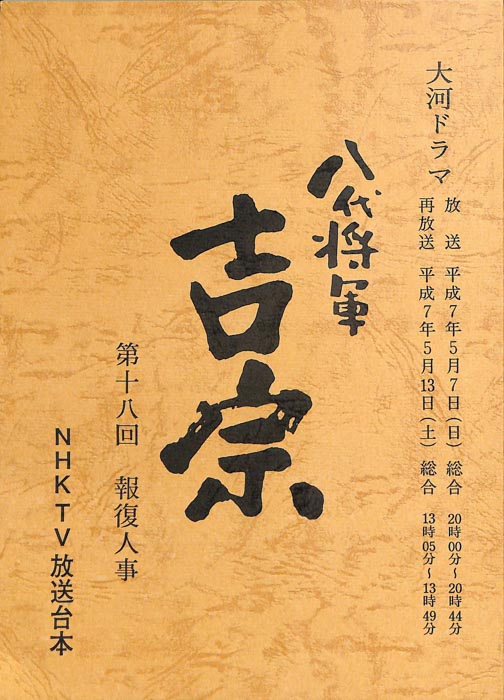 大河ドラマ
放送 平成7年5月7日(日) 総合 20時00分~20時44分
再放送 平成7年5月13日(土) 総合 13時05分~13時49分
八代将軍
吉宗
第十八回 報復人事
NHKTV放送台本